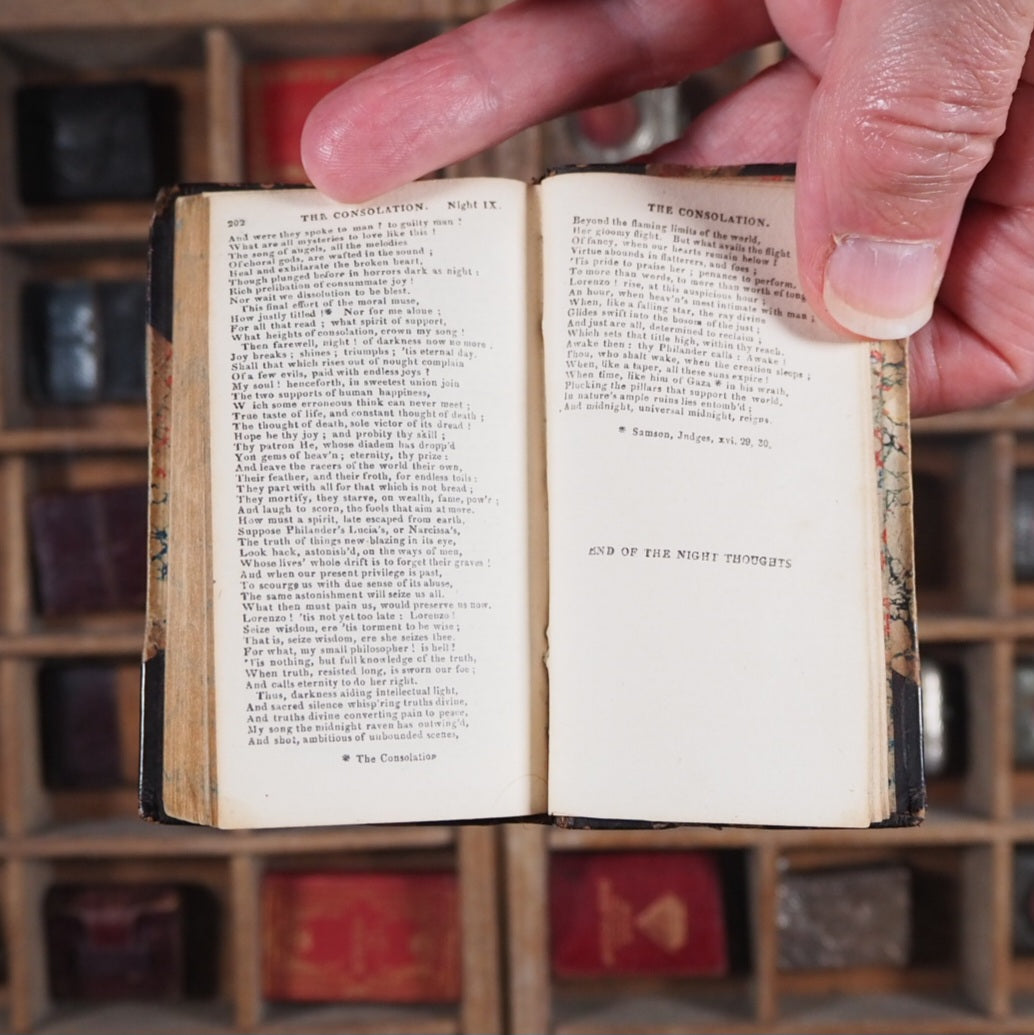 202
THE CONSOLATION. Night IX.
And were they spoke to man ? to guilty man !
What are all mysteries to love like this !
The song of angels, all the melodies
Of choral gods, are wafted in the sound ;
Heal and exhilarate the broken heart,
Though plunged before in horrors dark as night :
Rich prelibation of consummate joy !
Nor wait we dissolution to be blest.
This final effort of the moral muse,
How justly titled !* Nor for me alone ;
For all that read ; what spirit of support,
What heights of consolation, crown my song !
Then farewell, night ! of darkness now no more .
Joy breaks ; shines ; triumphs ; 'tis eternal day.
Shall that which rises out of nought complain
Of a few evils, paid with endless joys ?
My soul ! henceforth, in sweetest union join
The two supports of human happiness,
W ich some erroneous think can never meet ;
True taste of life, and constant thought of death ;
The thought of death, sole victor of its dread !
Hope be thy joy ; and probity thy skill ;
Thy patron He, whose diadem has dropp'd
Yon gems of heav'n ; eternity, thy prize :
And leave the racers of the world their own,
Their feather, and their froth, for endless toils :
They part with all for that which is not bread ;
They mortify, they starve, on wealth, fame, pow'r ;
And laugh to scorn, the fools that aim at more.
How must a spirit, late escaped from earth,
Suppose Philander's Lucia's, or Narcissa's,
The truth of things new-blazing in its eye,
Look back, astonish'd, on the ways of men,
Whose lives' whole drift is to forget their graves !
And when our present privilege is past,
To scourge us with due sense of its abuse,
The same astonishment will seize us all.
What then must pain us, would preserve us now.
Lorenzo ! 'tis not yet too late : Lorenzo !
Seize wisdom, ere 'tis torment to be wise ;
That is, seize wisdom, ere she seizes thee.
For what, my small philosopher ! is hell ?
'Tis nothing, but full knowledge of the truth,
When truth, resisted long, is sworn our foe ;
And calls eternity to do her right.
Thus, darkness aiding intellectual light,
And sacred silence whisp'ring truths divine,
And truths divine converting pain to peace,
My song the midnight raven has outwing'd,
And shot, ambitious of unbounded scenes,
* The Consolation
THE CONSOLATION.
Beyond the flaming limits of the world,
Her gloomy flight. But what avails the flight
Of fancy, when our hearts remain below ?
Virtue abounds in flatterers, and foes ;
'Tis pride to praise her ; penance to perform.
To more than words, to more than worth of tong
Lorenzo ! rise, at this auspicious hour ;
An hour, when heav'n's most intimate with man ;
When, like a falling star, the ray divine
Glides swift into the bosom of the just ;
And just are all, determined to reclaim ;
Which sets that title high, within thy reach.
Awake then : thy Philander calls : Awake !
Thou, who shalt wake, when the creation sleeps ;
When, like a taper, all these suns expire !
When time, like him of Gaza * in his wrath,
Plucking the pillars that support the world,
In nature's ample ruins lies entomb'd ;
And midnight, universal midnight, reigns.
* Samson, Judges, xvi. 29, 30.
END OF THE NIGHT THOUGHTS